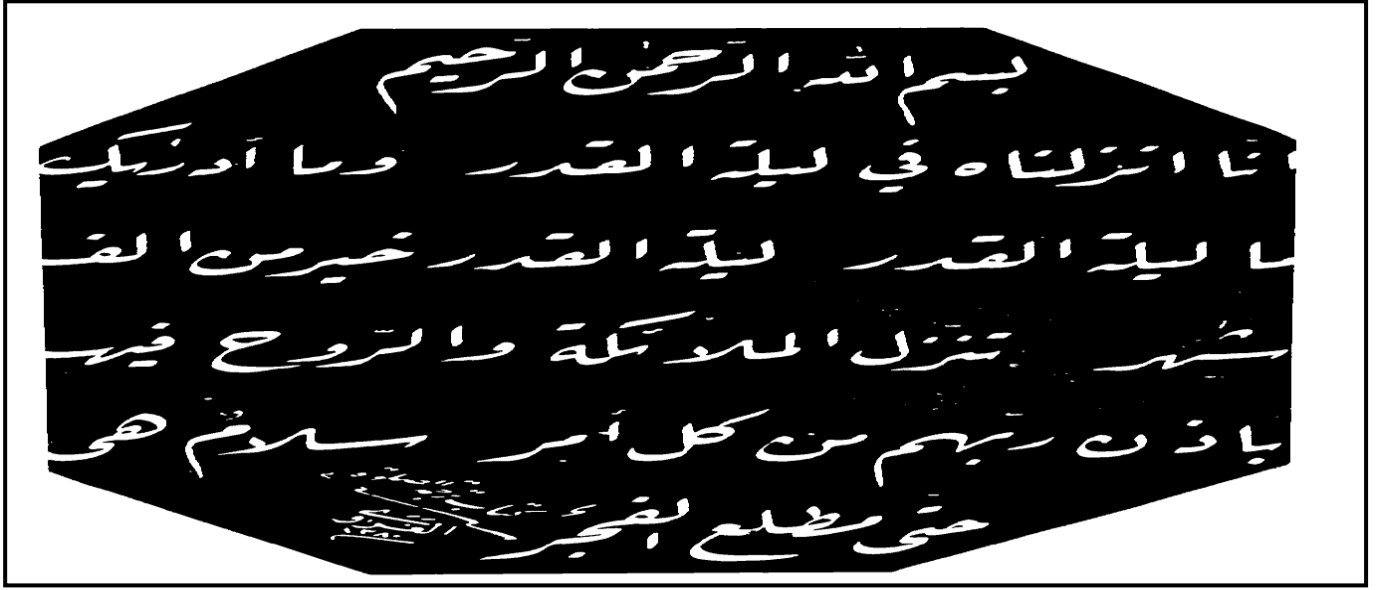 بسم الله الرّحمٰن الرّحيم
انّا انزلناه في ليلة القدر وما أدريك
ما ليلة القدر ليلة القدر خير من الف
شهر تنزّل الملائكة والرّوح فيها
باذن ربّهم من كل أمر سلامٌ هى
حتى مطلع الفجر